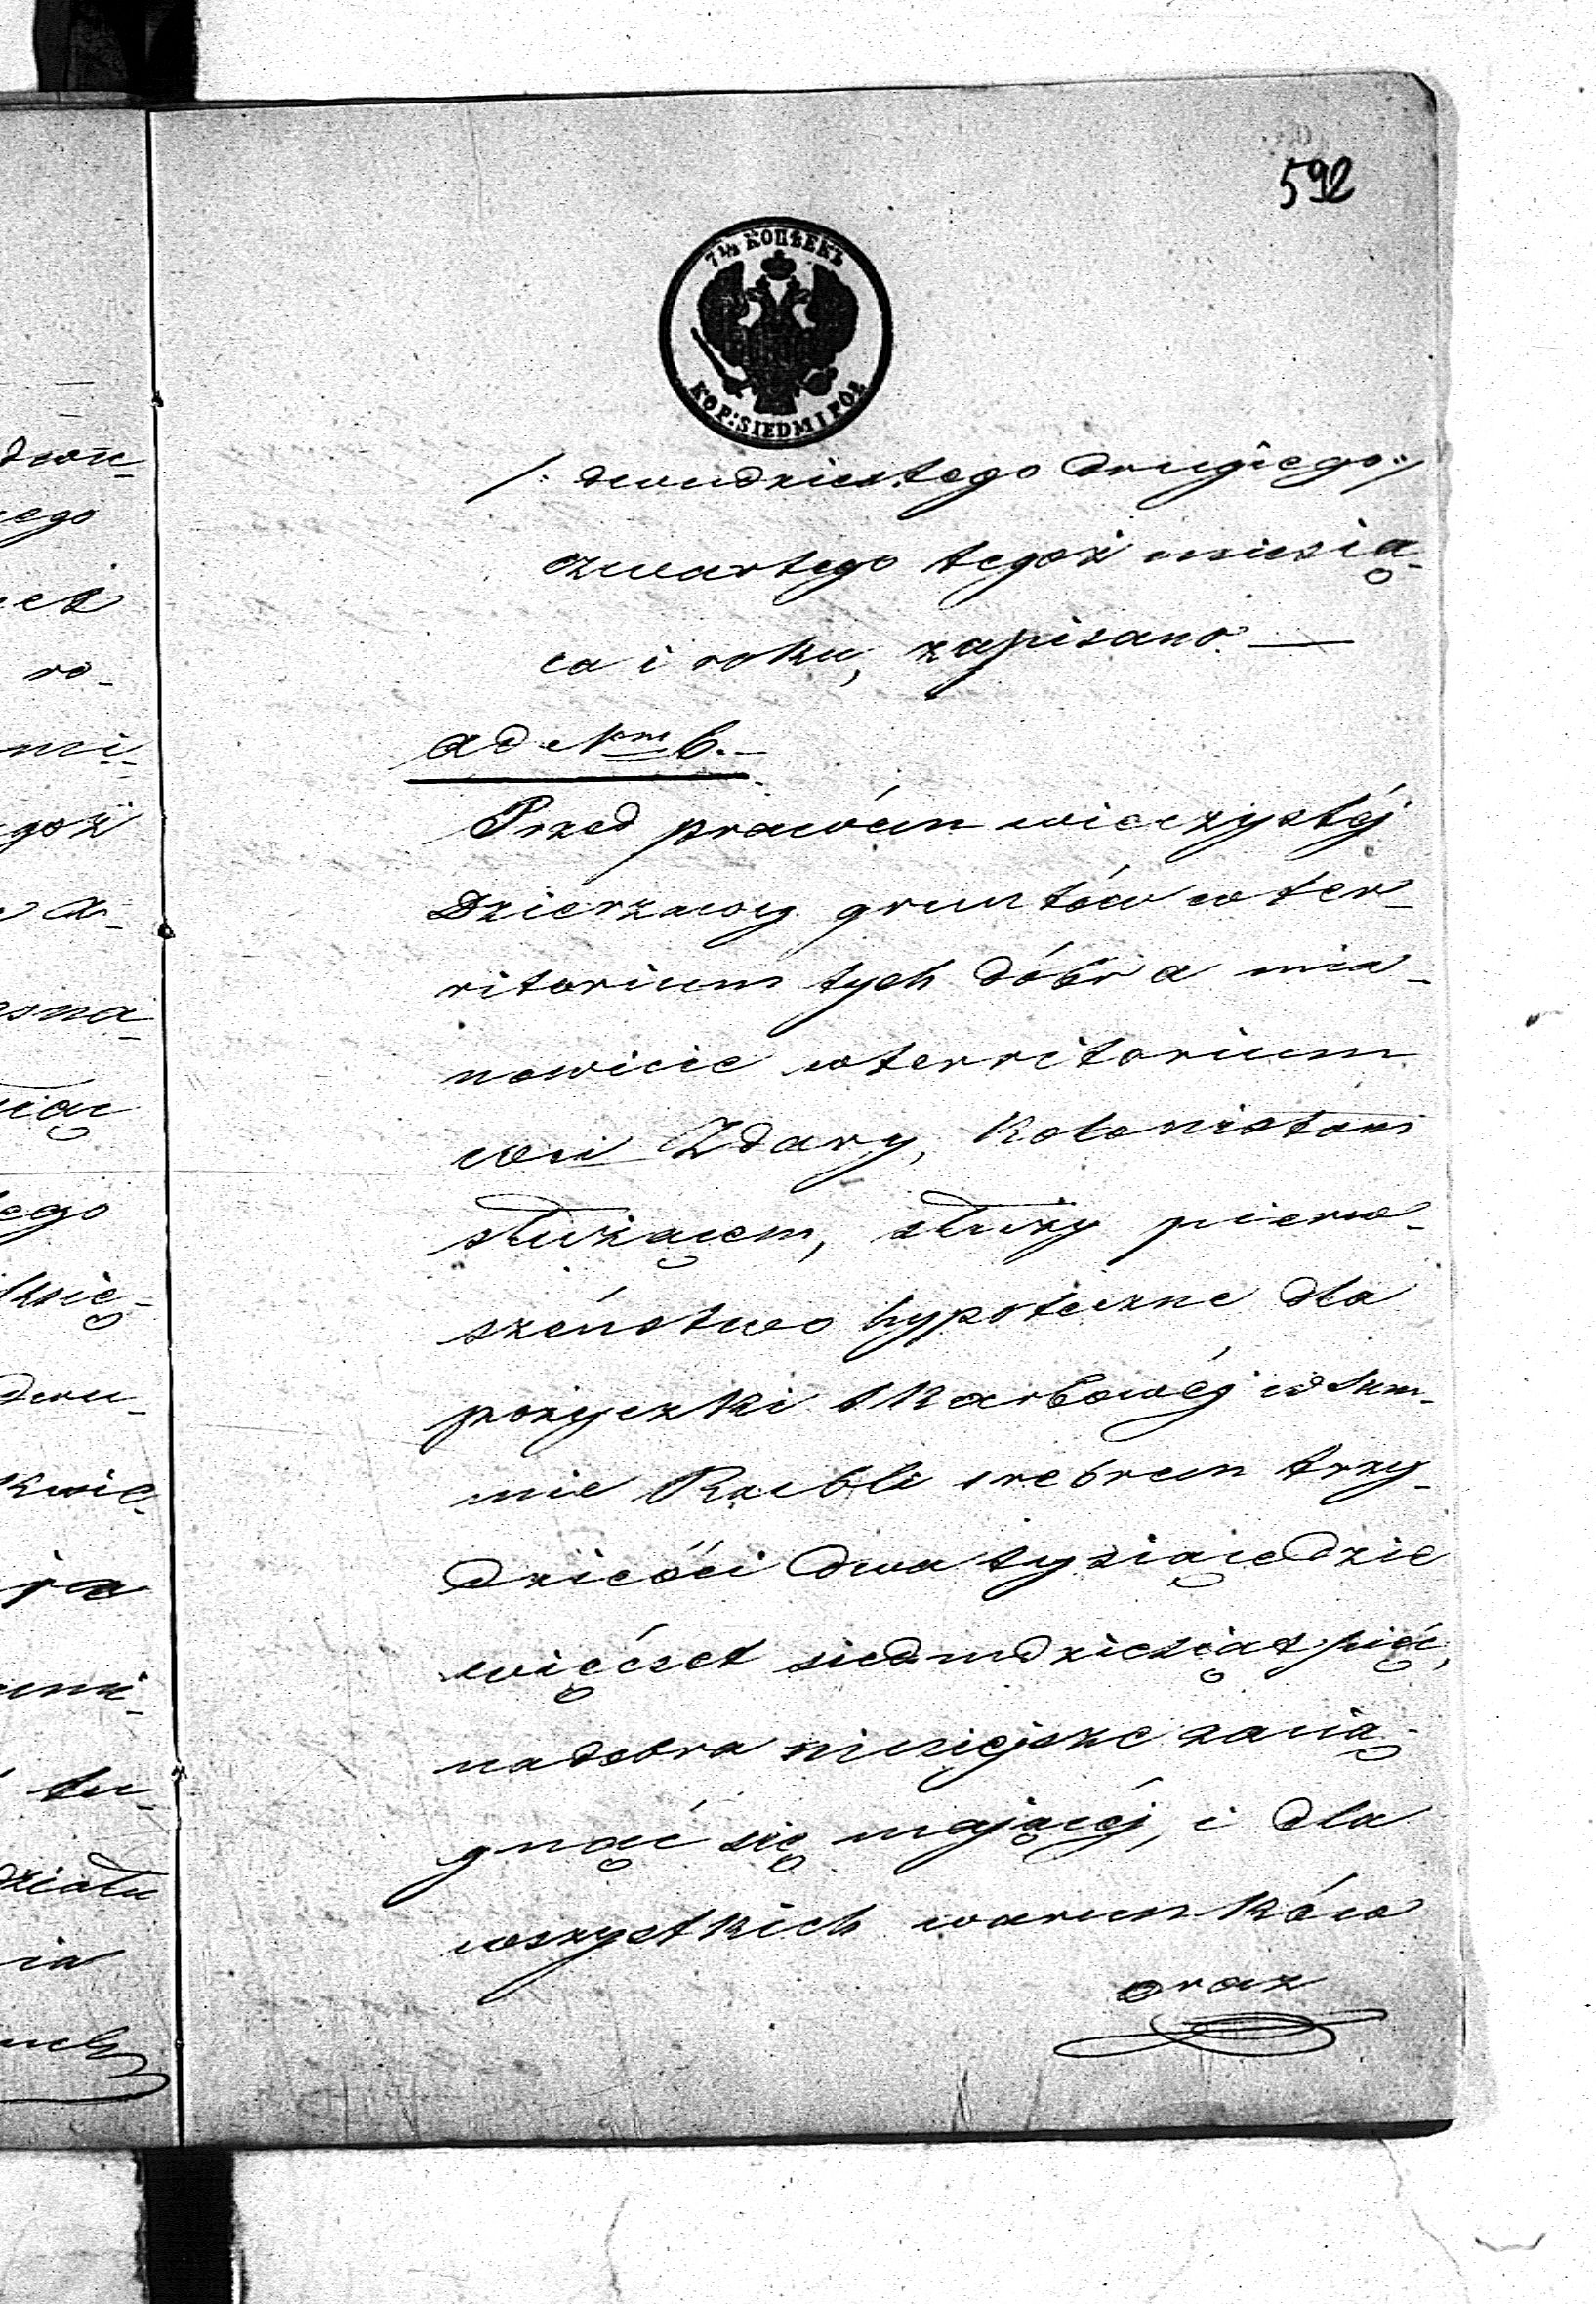 592
7½ КОПѢЕКЪ
KOP: SIEDM I PÓŁ
/: dwudziestego drugiego :/
czwartego tegoż miesią-
ca i roku, zapisano. —
ad Nrm 6. —
Przed prawem wieczystéj
Dzierzawy gruntów w ter-
ritorium tych dóbr a mia-
nowicie w territorium
wsi Zdary, Kolonistom
służącem, służy pierw-
szeństwo hypoteczne dla
pożyczki Skarbowéj w Sum-
mie Rubli srebrem trzy-
dzieści dwa tysiące dzie
więćset siedmdziesiąt pięć,
na dobra niniejsze zacią-
gnąć się mającéj, i dla
wszystkich warunków
oraz
dwu-
ego
ro-
mi-
goż
ego
dwu-
Kwie-
tu-
działu